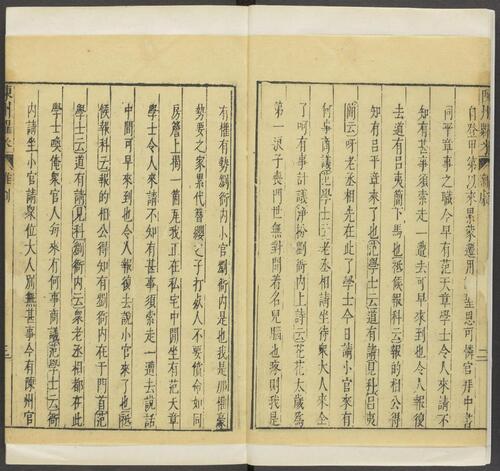 自登甲第以來累蒙遷用 聖恩可憐官拜中書
同平章事之職今早有范天章學士令人來請不
知有甚事須索走一遭去可早來到也令人報復
去道有呂夷簡下馬也祗候報科云報的相公得
知有呂平章來了也范學士云道有請見科呂夷
簡云呀老丞相先在此了學士今日請小官來有
何事商議范學士云老丞相請坐待衆大人來全
了呵有事計議淨扮劉衙内上詩云花花太歲爲
第一浪子喪門世無對聞着名兒腦也疼則我是
有權有勢劉衙内小官劉衙内是也我是那權豪
勢要之家累代簪纓之子打死人不要償命如同
房簷上揭一箇瓦我正在私宅中閒坐有范天章
學士令人來請不知有甚事須索走一遭去說話
中間可早來到也令人報復去說小官來了也祗
候報科云報的相公得知有劉衙内在于門首范
學士云道有請見科劉衙内云衆老丞相都在此
學士喚俺衆官人每來有何事商議范學士云衙
内請坐小官請衆位大人別無甚事今有陳州官
陳州糶米
雜劇
二
三